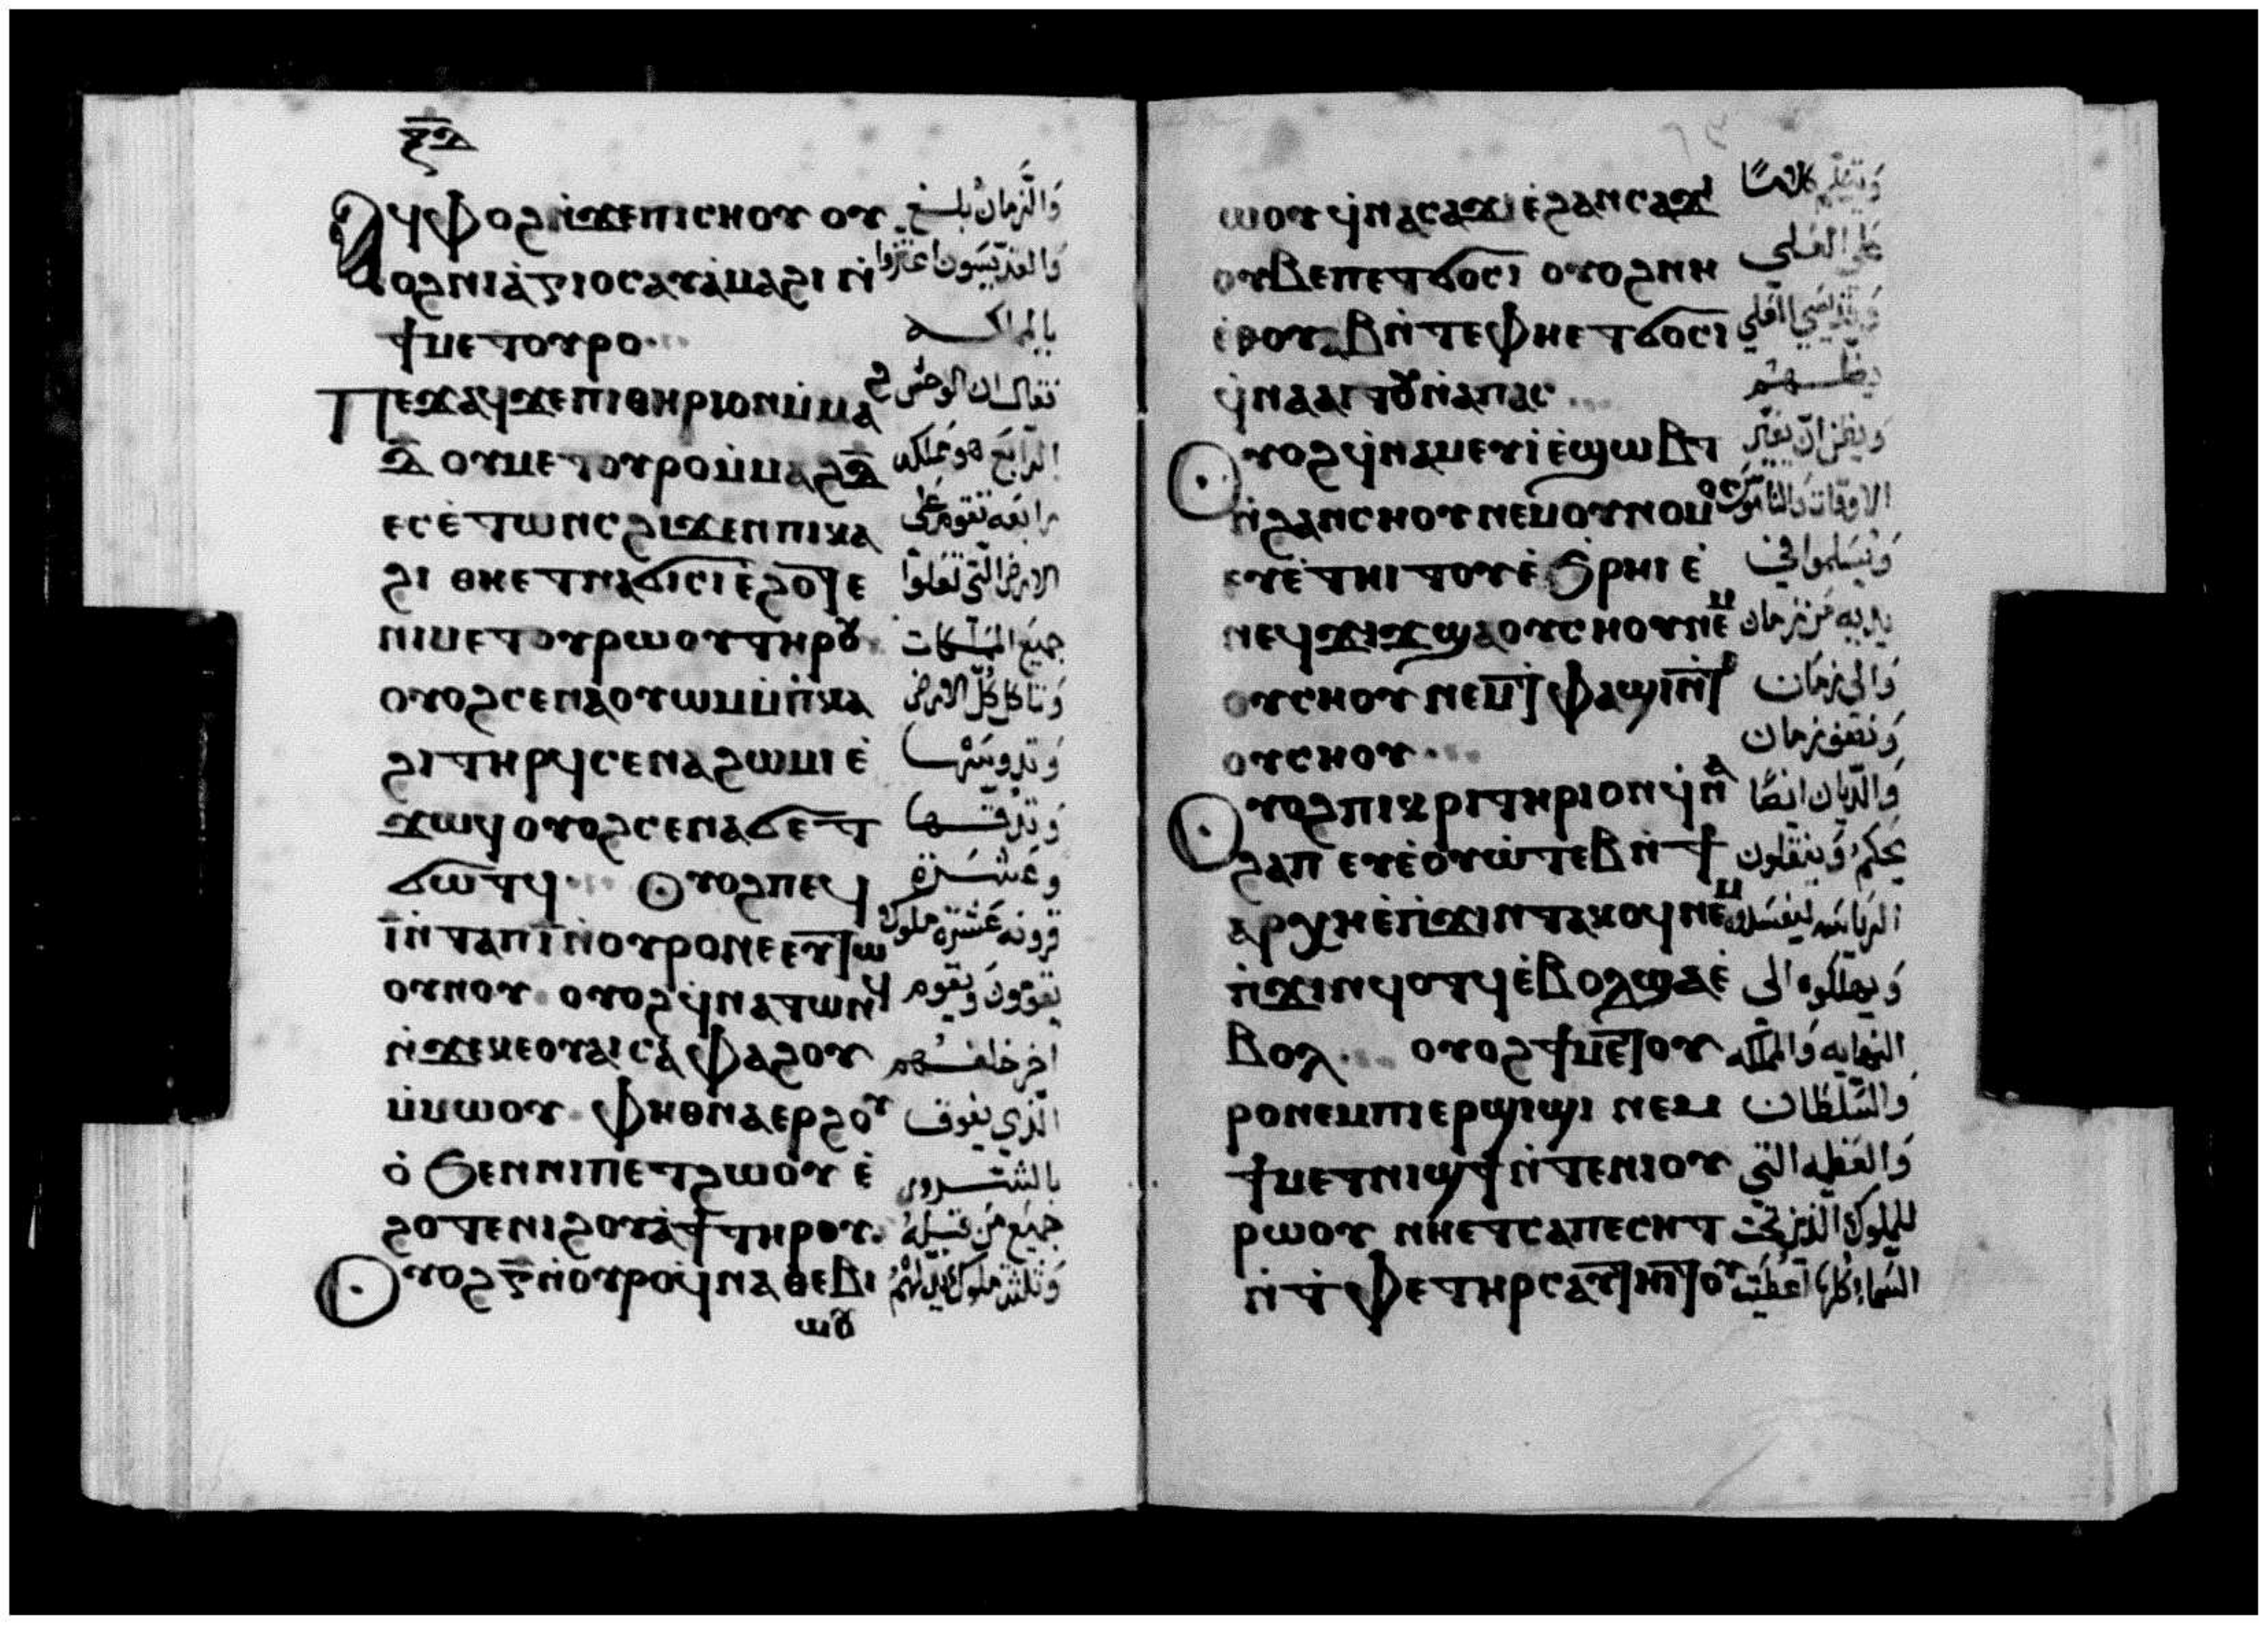 ⲝⲇ
Ⲁϥⲫⲟϩ ⲛ̇ϫⲉⲡⲓⲥⲏⲟⲩ ⲟⲩ وَالزَّمانُ بلَـغ
ⲟϩ ⲛⲓⲁ̇ⲅⲓⲟⲥ ⲁⲩⲁ̇ⲙⲁϩⲓ ⲛ̇ وَالقدّيسَون اعتزوا
ϯⲙⲉⲧⲟⲩⲣⲟ⁘
Ⲡⲉϫⲁϥ ϫⲉⲡⲓⲑⲏⲣⲓⲟⲛ ⲙ̇ⲙⲁ
ⲇ̄ ⲟⲩⲙⲉⲧⲟⲩⲣⲟ ⲙ̇ⲙⲁϩⲇ̄ الرَّابَع هو مملكه
ⲉⲥⲉ̇ⲧⲱⲛⲥ ϩⲓϫⲉⲛ ⲡⲓⲕⲁ رابعَه تقوم على
ϩⲓ ⲑⲏⲉⲧⲛⲁϭⲓⲥⲓ ⲉ̇ϩⲟⲧⲉ الارض التي تعَلوا
ⲛⲓⲙⲉⲧⲟⲩⲣⲱⲟⲩ ⲧⲏⲣⲟⲩ جميَع المَملكات
ⲟⲩⲟϩ ⲥⲉⲛⲁⲟⲩⲱⲙ ⲙ̇ⲡ̇ⲕⲁ وَتاكل كُلّ الارض
ϩⲓ ⲧⲏⲣϥ ⲥⲉⲛⲁϩⲱⲙⲓ ⲉ̇ وَتدوسَها
ϫⲱϥ ⲟⲩⲟϩ ⲥⲉⲛⲁϭⲉⲧ وَتدقـها
ϭⲱⲧϥ⁘ Ⲟⲩⲟϩ ⲡⲉϥ وعَشـرَة
ⲓ̄ ⲛ̇ⲧⲁⲡ ⲓ̄ ⲛ̇ⲟⲩⲣⲟ ⲛⲉ ⲉⲩⲧⲱ قرونه عَشرَة ملوك
ⲟⲩⲛⲟⲩ ⲟⲩⲟϩ ϥ̇ⲛⲁⲧⲱⲛϥ يقوَمون وَيقوم
ⲛ̇ϫⲉⲕⲉⲟⲩⲁⲓ ⲥⲁ ⲫⲁϩⲟⲩ اخر خلفـهم
ⲙ̇ⲙⲱⲟⲩ ⲫⲏⲑⲛⲁⲉⲣϩⲟⲩ الّذي يفوق
ⲟ̇ ϧⲉⲛ ⲛⲓⲡⲉⲧϩⲱⲟⲩ ⲉ̇ بالشـرور
ϩⲟⲧⲉ ⲛⲓϩⲟⲩⲁ̇ϯ ⲧⲏⲣⲟⲩ جميَع مَن قبـله
Ⲟⲩⲟϩ ⲅ̄ ⲛ̇ⲟⲩⲣⲟ ϥ̇ⲛⲁⲑⲉⲃⲓ
ⲱⲟⲩ
ⲱⲟⲩ ϥ̇ⲛⲁⲥⲁϫⲓ ⲉ̇ϩⲁⲛⲥⲁϫⲓ وَيتكلّم كلامًا
ⲟⲩⲃⲉ ⲡⲉⲧϭⲟⲥⲓ ⲟⲩⲟϩ ⲛⲏ عَلى العَـلي
ⲉ̇ⲑⲟⲩⲁⲃ ⲛ̇ⲧⲉ ⲫⲏⲉⲧϭⲟⲥⲓ
ϥ̇ⲛⲁⲁⲓⲧⲟⲩ ⲛ̇ⲁⲡⲁⲥ⁘
Ⲟⲩⲟϩ ϥ̇ⲛⲁⲙⲉⲩⲓ ⲉ̇ϣⲱⲃⲧ وَيظن انّ يغيّر
ⲛ̇ϩⲁⲛⲥⲏⲟⲩ ⲛⲉⲙ ⲟⲩⲛⲟⲙⲟⲥ الاوقات وَالناموس
ⲉⲩⲉ̇ⲧⲏⲓⲧⲟⲩ ⲉ̇ϧⲣⲏⲓ ⲉ̇ وَيسَلموا في
ⲛⲉϥϫⲓϫ ϣⲁ ⲟⲩⲥⲏⲟⲩ ⲛⲉⲙ يديه مَن زمان
ⲟⲩⲥⲏⲟⲩ ⲛⲉⲙ ⲧⲫⲁϣⲓ ⲛ̇ⲧⲉ وَالى زمَان
ⲟⲩⲥⲏⲟⲩ⁘ وَنصَف زمان
Ⲟⲩⲟϩ ⲡⲓⲕⲣⲓⲧⲏⲣⲓⲟⲛ ϥ̇ⲛⲁ وَالدّيان ايضًا
ϩⲁⲡ ⲉⲩⲉ̇ⲟⲩⲱ̇ⲧⲉⲃ ⲛ̇ϯ يحكم وَينقلون
ⲁⲣⲭⲏ ⲉ̇ⲡ̇ϫⲓⲛⲧⲁⲕⲟϥ ⲛⲉⲙ
ⲛ̇ϫⲓⲛϥⲟⲧϥ ⲉ̇ⲃⲟⲗ ϣⲁⲉ̇ وَيهلكوه الى
ⲃⲟⲗ⁘ ⲟⲩⲟϩ ϯⲙⲉⲧⲟⲩ النهايه وَالمملكه
ⲣⲟ ⲛⲉⲙ ⲡⲓⲉⲣϣⲓϣⲓ ⲛⲉⲙ وَالسَّلطان
ϯⲙⲉⲧⲛⲓϣϯ ⲛ̇ⲧⲉ ⲛⲓⲟⲩ وَالعَظمه التي
ⲣⲱⲟⲩ ⲛⲏⲉⲧⲥⲁⲡⲉⲥⲏⲧ للملوك الّذين تحت
ⲛ̇ⲧ̇ⲫⲉ ⲧⲏⲣⲥ ⲁⲩⲧⲏⲓⲧⲟⲩ السَّماء كلها اعطيَت